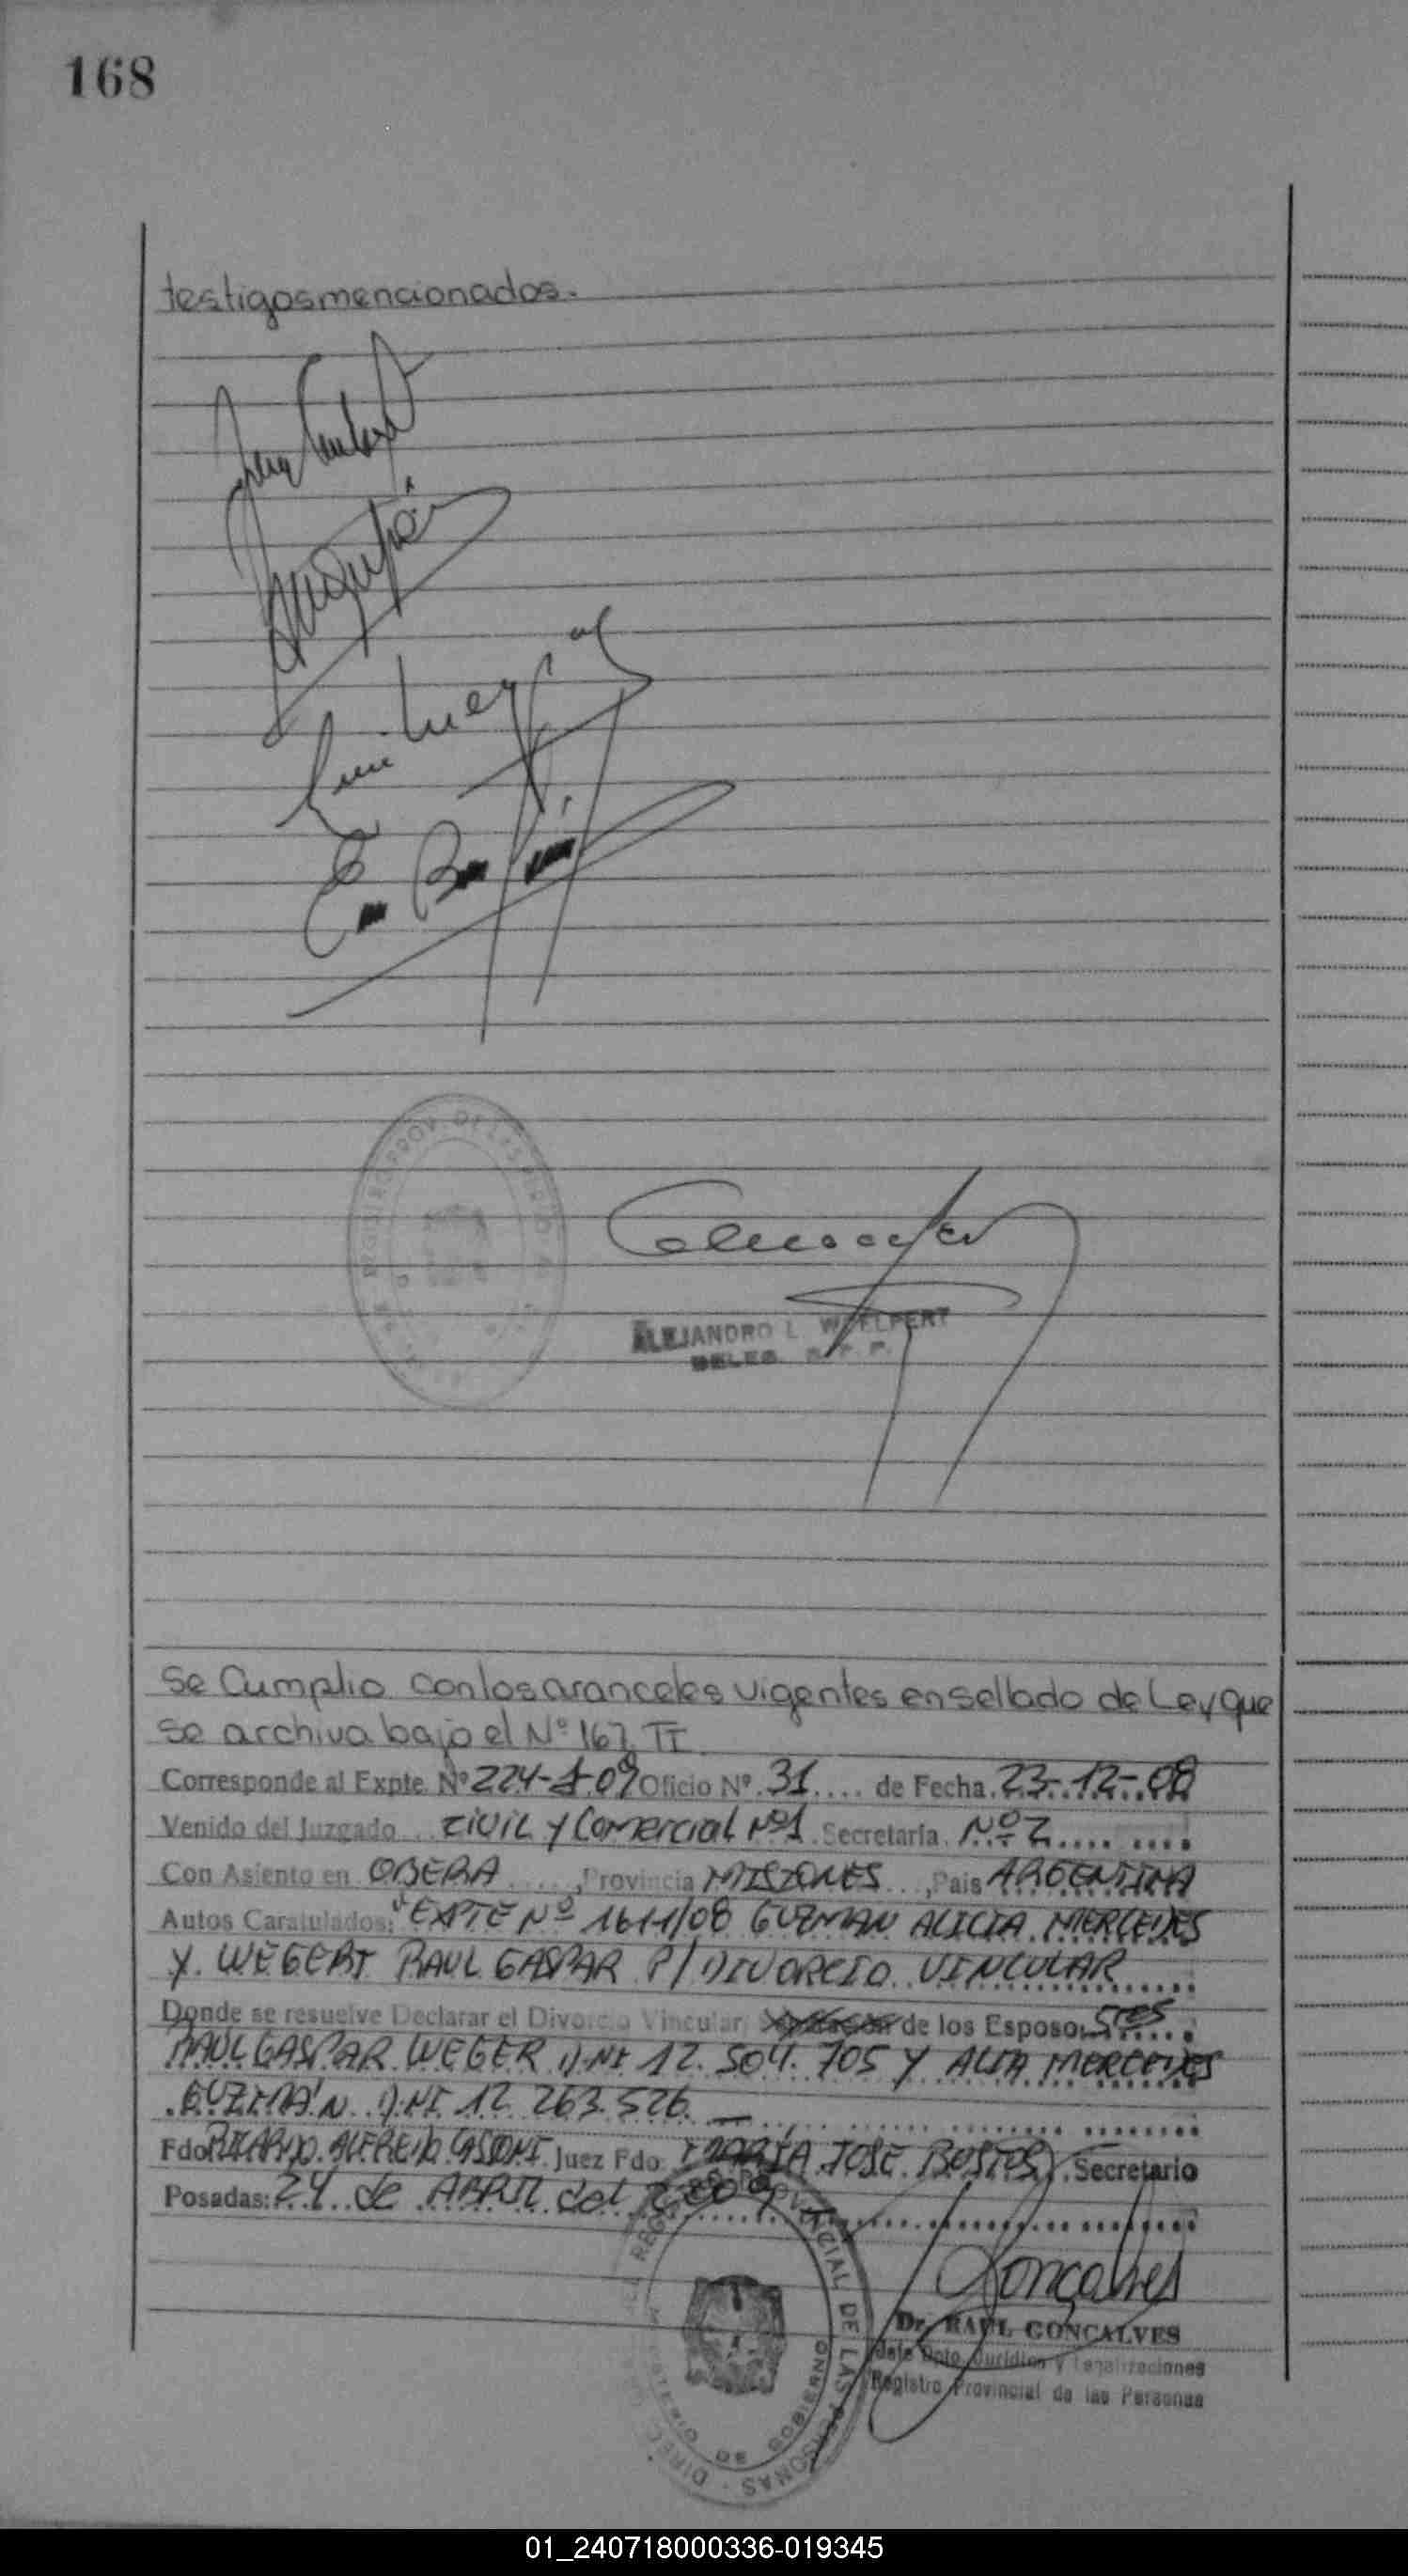 168
testigos mencionados.
ALEJANDRO L. WOELPERT
DELEG. R. P. P.
Se Cumplio con los aranceles vigentes en sellado de Ley que
se archiva bajo el Nº 167. TI.
Corresponde al Expte. Nº 224-J-09 Oficio Nº 31 .... de Fecha 23-12-08
Venido del Juzgado CIVIL Y Comercial Nº1 Secretaría Nº 2
Con Asiento en OBERA ....., Provincia MISIONES ..., País ARGENTINA
Autos Caratulados: "EXPTE Nº 1611/08 GUZMAN ALICIA MERCEDES
Y WEGERT RAUL GASPAR P/ DIVORCIO VINCULAR
Donde se resuelve Declarar el Divorcio Vincular, de los Esposos Sres
RAUL GASPAR WEGER DNI 12.504.705 Y ALIA MERCEDES
GUZMÁN DNI 12.263.526
Fdo RICARDO ALFREDO CASONI Juez Fdo. MARÍA JOSE BUSTOS Secretario
Posadas: 24 de ABRIL del 2009
REGISTRO PROVINCIAL DE LAS PERSONAS
DIREC
GOBIERNO
Goncalves
Dr. RAUL GONCALVES
Jefe Dpto. Jurídico y Legalizaciones
Registro Provincial de las Personas
01_240718000336-019345